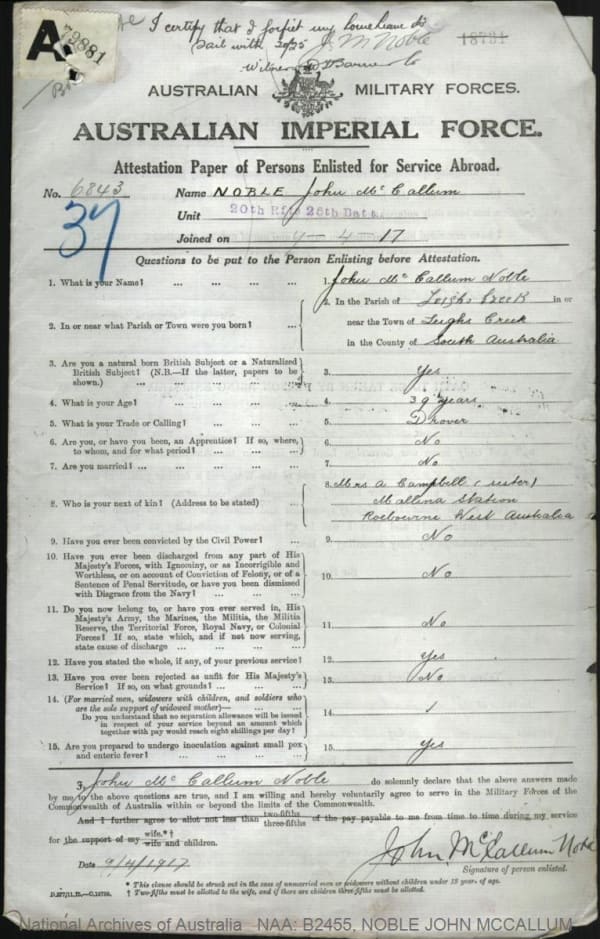 I certify that I forfeit my home leave to
sail with 20/25 J M Noble 18731
Witness
A 79881
AUSTRALIAN MILITARY FORCES.
AUSTRALIAN IMPERIAL FORCE.
Attestation Paper of Persons Enlisted for Service Abroad.
No. 6843 Name NOBLE John McCallum
37 Unit 20th Rfts 28th Batn.
Joined on 4-17
Questions to be put to the Person Enlisting before Attestation.
1. What is your Name? ... ... ... ... 1. John McCallum Noble
2. In or near what Parish or Town were you born? ... 2. In the Parish of Leighs Creek in or
near the Town of Leighs Creek
in the County of South Australia
3. Are you a natural born British Subject or a Naturalized
British Subject? (N.B.—If the latter, papers to be
shown.) ... ... ... ... 3. Yes
4. What is your Age? ... ... ... ... 4. 39 years
5. What is your Trade or Calling? ... ... ... 5. Drover
6. Are you, or have you been, an Apprentice? If so, where,
to whom, and for what period? ... ... ... 6. No
7. Are you married? ... ... ... ... ... 7. No
8. Who is your next of kin? (Address to be stated) ... 8. Mrs A Campbell (sister)
Mallina Station
Roebourne West Australia
9. Have you ever been convicted by the Civil Power? ... 9. No
10. Have you ever been discharged from any part of His
Majesty's Forces, with Ignominy, or as Incorrigible and
Worthless, or on account of Conviction of Felony, or of a
Sentence of Penal Servitude, or have you been dismissed
with Disgrace from the Navy? ... ... ... 10. No
11. Do you now belong to, or have you ever served in, His
Majesty's Army, the Marines, the Militia, the Militia
Reserve, the Territorial Force, Royal Navy, or Colonial
Forces? If so, state which, and if not now serving,
state cause of discharge ... ... ... ... 11. No
12. Have you stated the whole, if any, of your previous service? 12. Yes
13. Have you ever been rejected as unfit for His Majesty's
Service? If so, on what grounds? ... ... ... 13. No
14. (For married men, widowers with children, and soldiers who
are the sole support of widowed mother)—
Do you understand that no separation allowance will be issued
in respect of your service beyond an amount which
together with pay would reach eight shillings per day? 14. /
15. Are you prepared to undergo inoculation against small pox
and enteric fever? ... ... ... ... 15. Yes
I, John McCallum Noble do solemnly declare that the above answers made
by me to the above questions are true, and I am willing and hereby voluntarily agree to serve in the Military Forces of the
Commonwealth of Australia within or beyond the limits of the Commonwealth.
And I further agree to allot not less than two-fifths three-fifths of the pay payable to me from time to time during my service
for the support of my wife.*† wife and children.
Date 9/4/1917 John McCallum Noble
Signature of person enlisted.
* This clause should be struck out in the case of unmarried men or widowers without children under 18 years of age.
† Two-fifths must be allotted to the wife, and if there are children three-fifths must be allotted.
National Archives of Australia NAA: B2455, NOBLE JOHN MCCALLUM